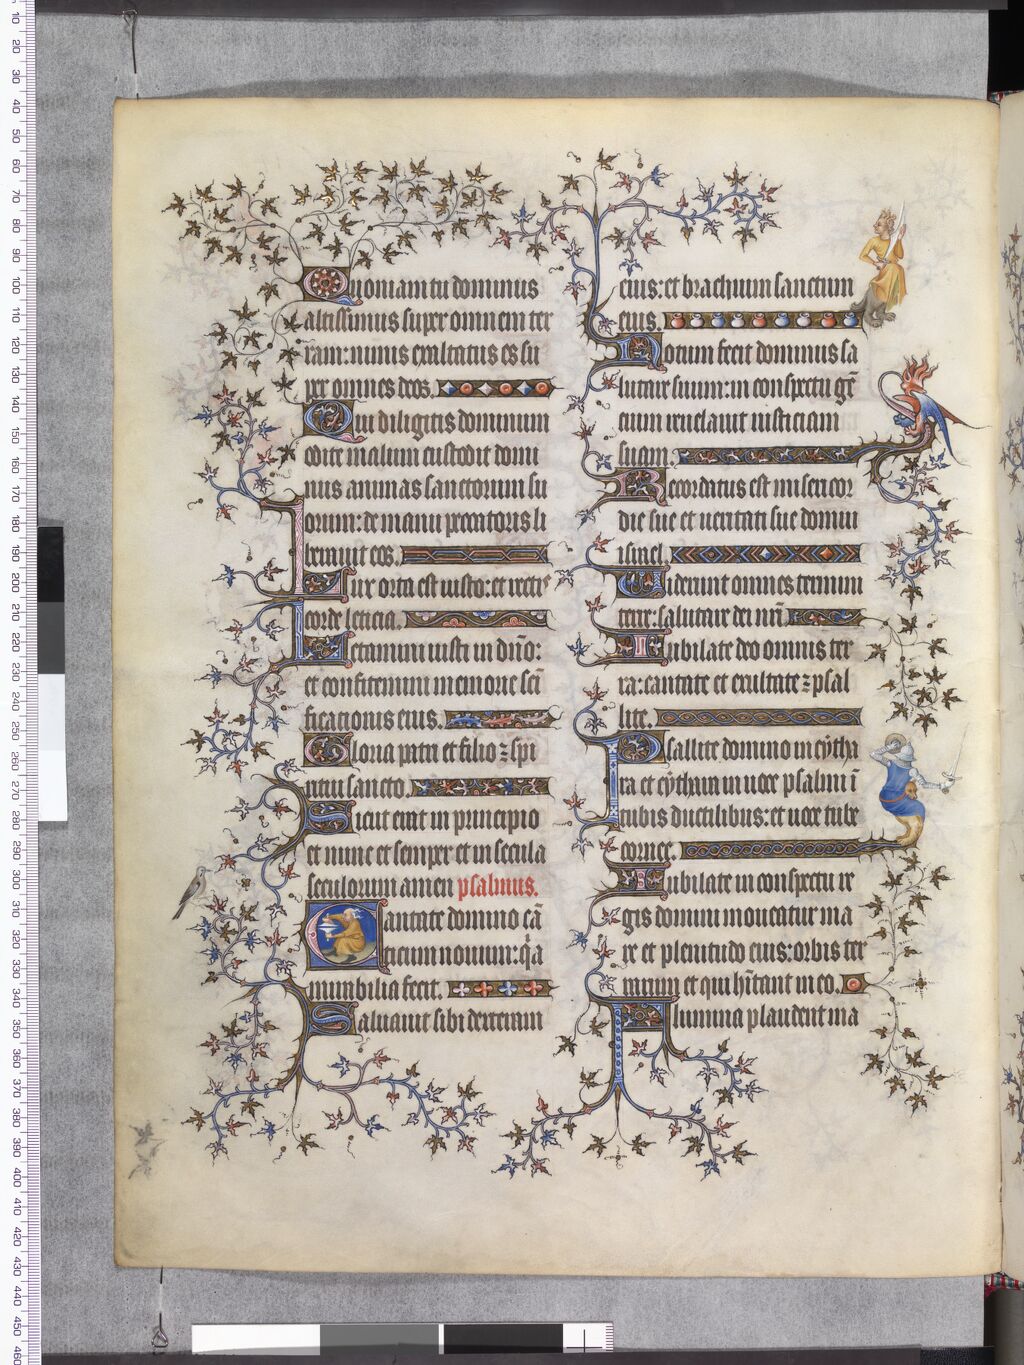 Quoniam tu dominus
altissimus super omnem ter
ram: nimis exaltatus es su
per omnes deos.
Qui diligitis dominum
odite malum custodit domi
nus animas sanctorum su
orum: de manu peccatoris li
berauit eos.
Lux orta est iusto: et rectis
corde leticia.
Letamini iusti in dño:
et confitemini memorie scī
ficationis eius.
Gloria patri et filio ⁊ spi
ritui sancto.
Sicut erat in principio
et nunc et semper et in secula
seculorum amen psalmus.
Cantate domino cā
ticum nouum: q̇a
mirabilia fecit.
Saluauit sibi dexteram
eius: et brachium sanctum
eius.
Notum fecit dominus sa
lutare suum: in conspectu gē
cium reuelauit iusticiam
suam.
Recordatus est misericor
die sue et ueritati sue domui
israel.
Uiderunt omnes termini
terre: salutare dei nr̄i.
Iubilate deo omnis ter
ra: cantate et exultate ⁊ psal
lite.
Psallite domino in cytha
ra et cythara in uoce psalmi ī
tubis ductilibus: et uoce tube
cornee.
Iubilate in conspectu re
gis domini moueatur ma
re et plenitudo eius: orbis ter
rarum et qui hītant in eo.
Flumina plaudent ma
10
20
30
40
50
60
70
80
90
100
110
120
130
140
150
160
170
180
190
200
210
220
230
240
250
260
270
280
290
300
310
320
330
340
350
360
370
380
390
400
410
420
430
440
450
460